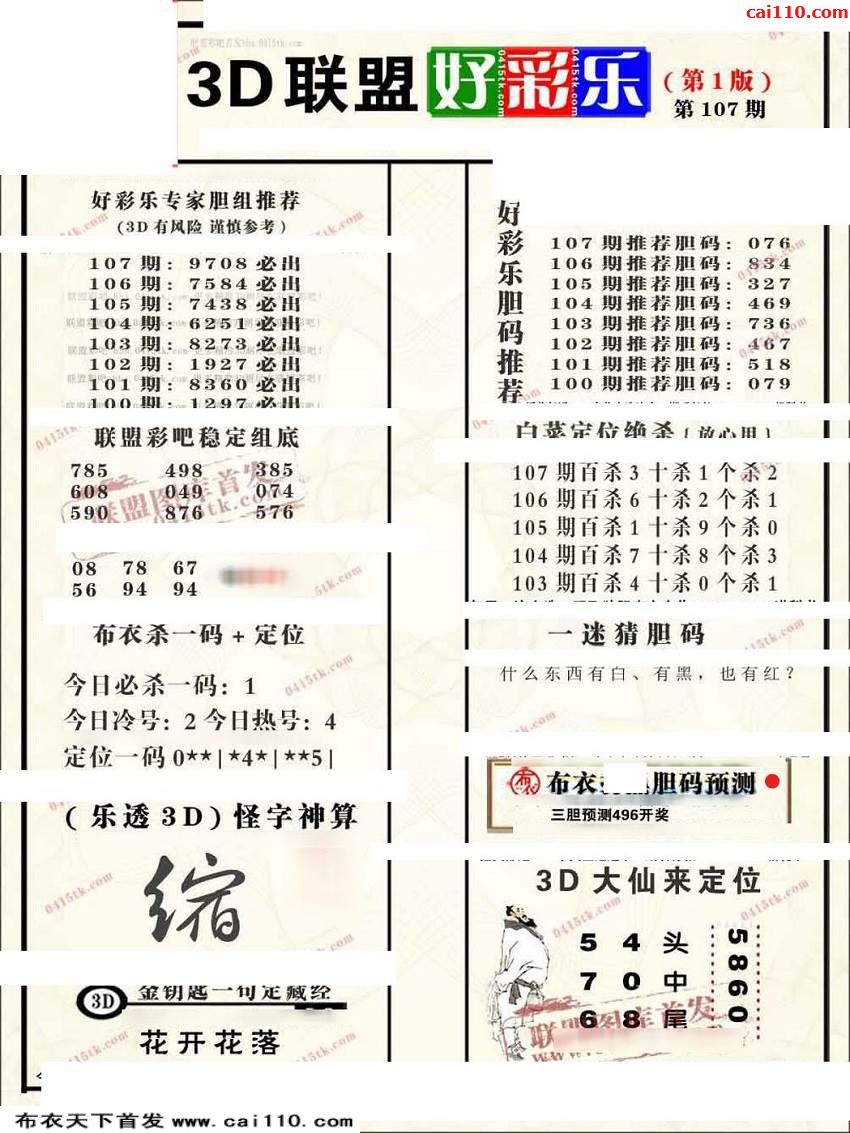 cai110.com
3D联盟好彩乐(第1版)
第107期
好彩乐专家胆组推荐
(3D有风险 谨慎参考)
107期: 9708必出
106期: 7584必出
105期: 7438必出
104期: 6251必出
103期: 8273必出
102期: 1927必出
101期: 8360必出
100期: 1297必出
联盟彩吧稳定组底
785 498 385
608 049 074
590 876 576
08 78 67
56 94 94
布衣杀一码+定位
今日必杀一码: 1
今日冷号: 2 今日热号: 4
定位一码 0**|*4*|**5|
(乐透3D)怪字神算
缩
3D 金钥匙一句定藏经
花开花落
好彩乐胆码推荐
107期推荐胆码: 076
106期推荐胆码: 834
105期推荐胆码: 327
104期推荐胆码: 469
103期推荐胆码: 736
102期推荐胆码: 467
101期推荐胆码: 518
100期推荐胆码: 079
白菜定位绝杀(放心用)
107期百杀3十杀1个杀2
106期百杀6十杀2个杀1
105期百杀1十杀9个杀0
104期百杀7十杀8个杀3
103期百杀4十杀0个杀1
一迷猜胆码
什么东西有白、有黑，也有红?
布衣 胆码预测
三胆预测496开奖
3D大仙来定位
5 4 头
7 0 中
6 8 尾
5860
联盟图库首发
0415tk.com
布衣天下首发 www.cai110.com